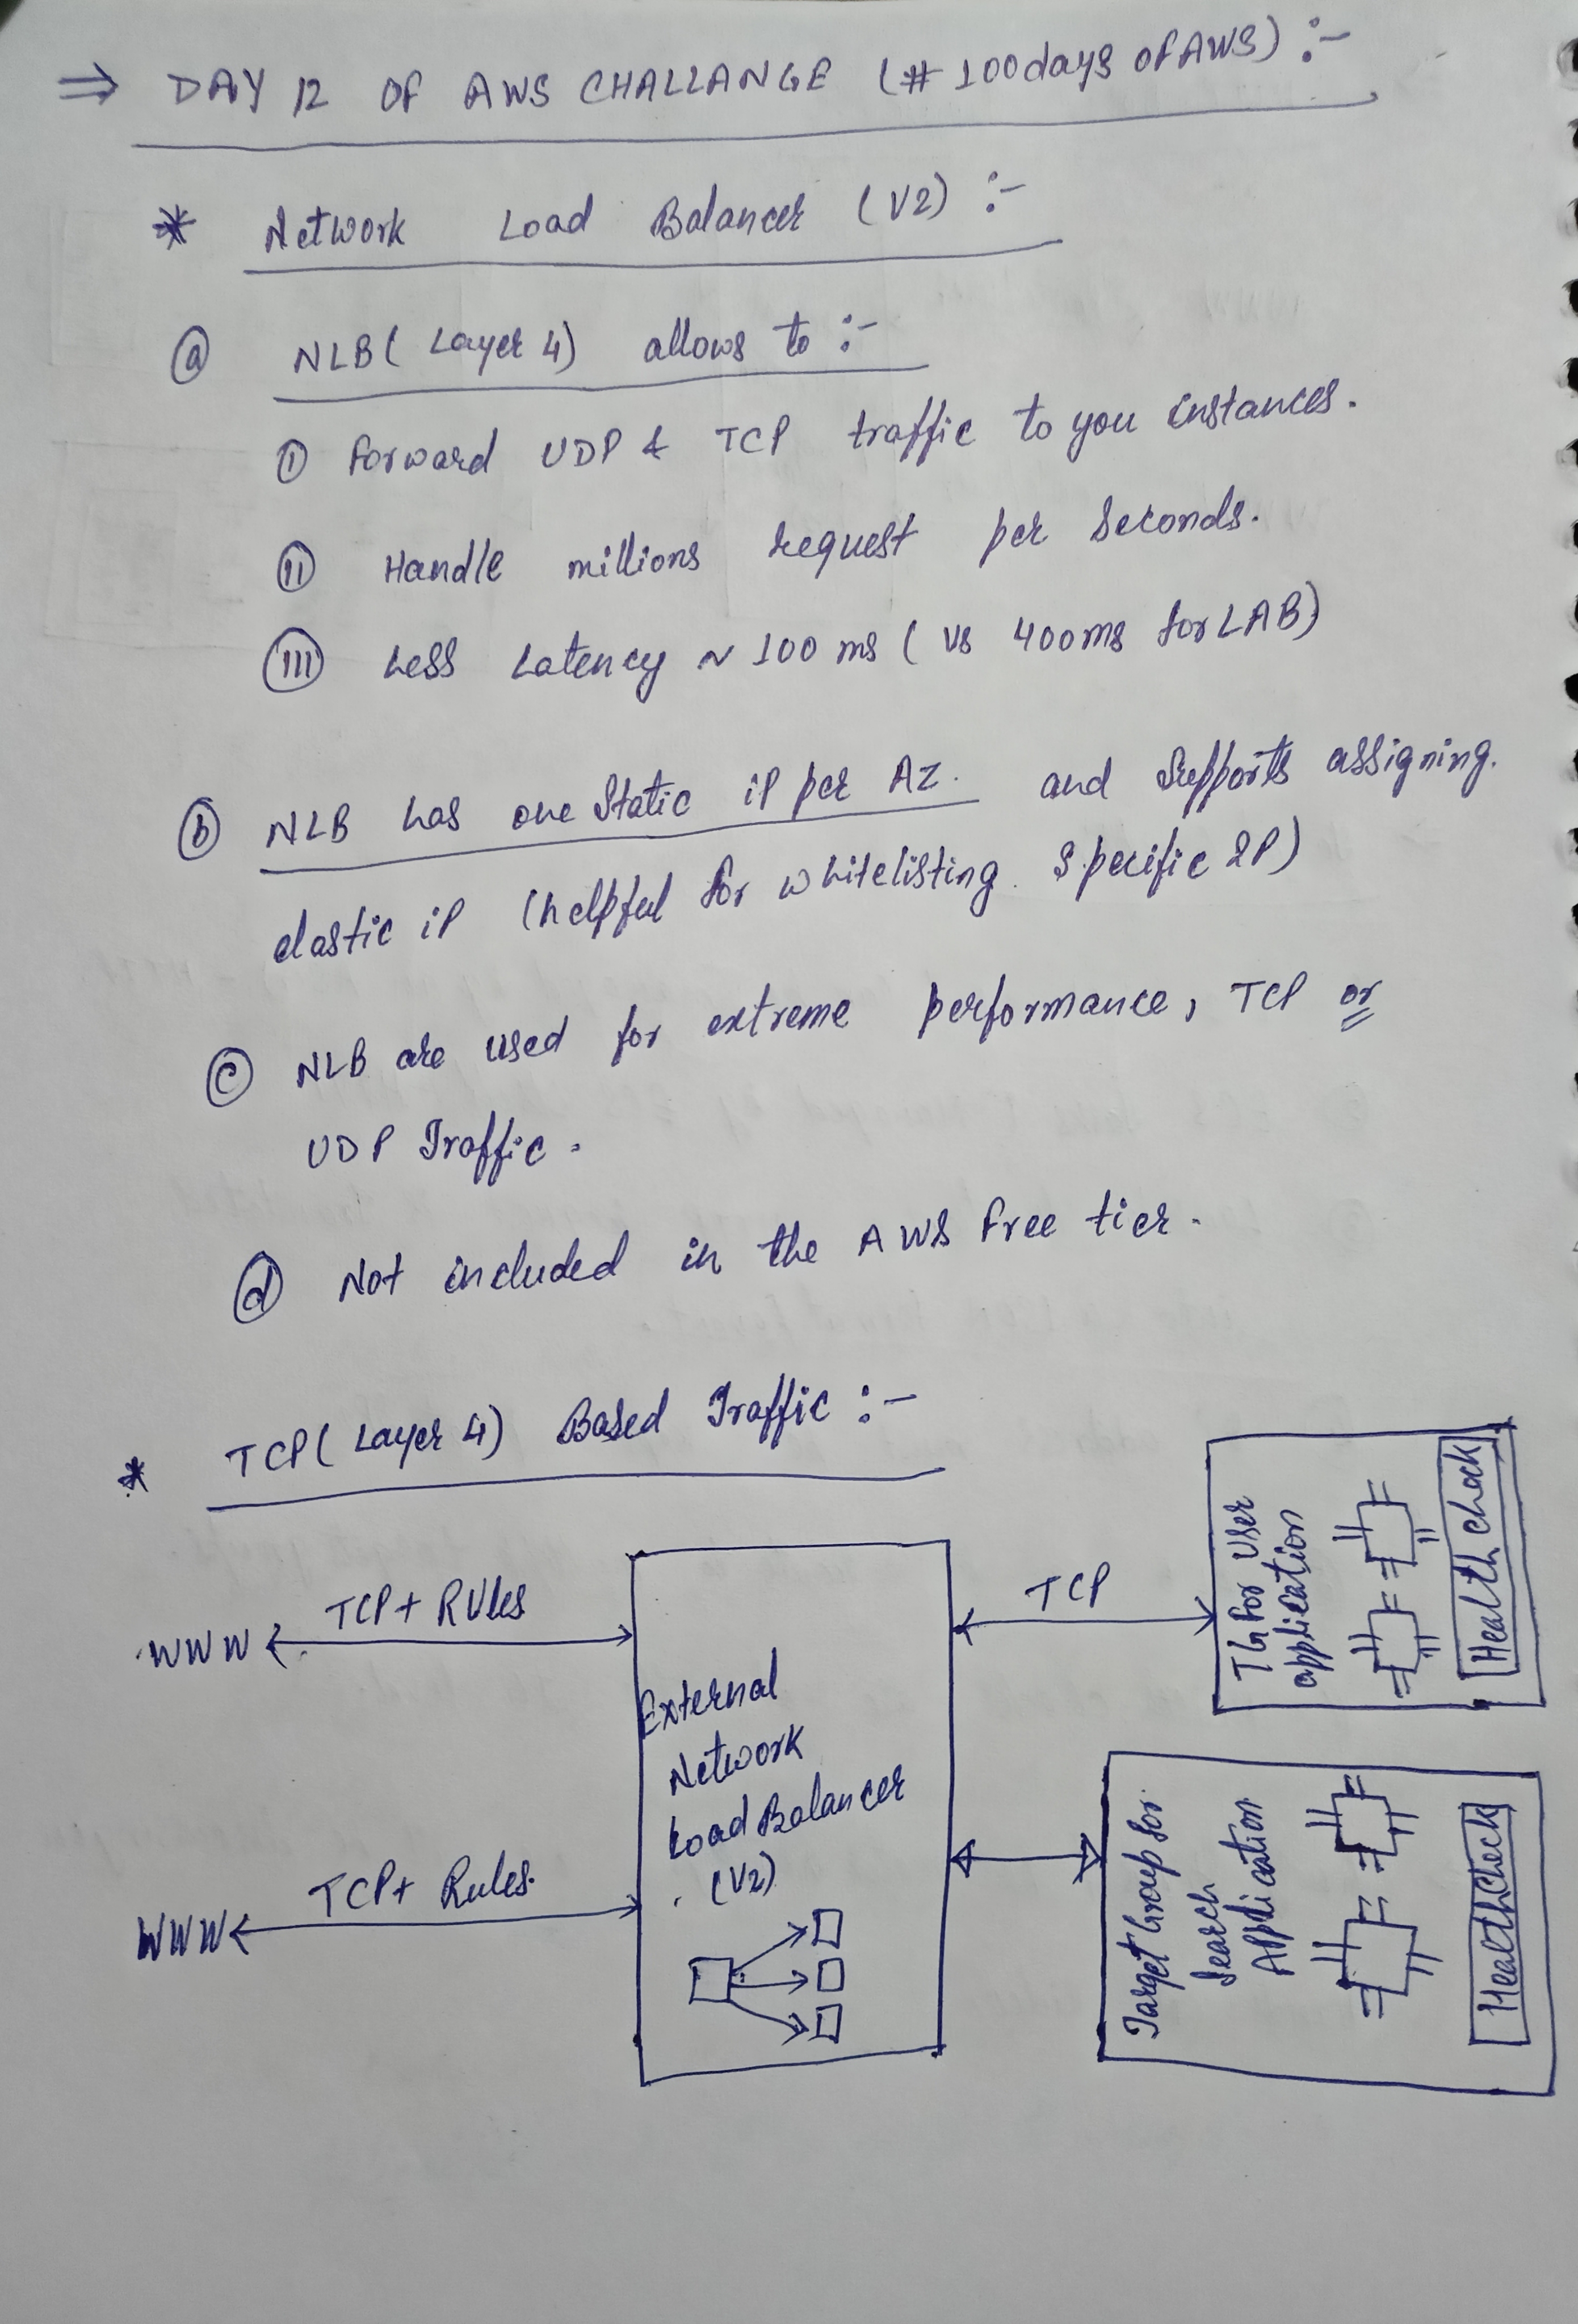 ⇒ DAY 12 OF AWS CHALLANGE (# 100days of AWS) :-
* Network Load Balancer (V2) :-
ⓐ NLB( Layer 4) allows to :-
(I) Forward UDP & TCP traffic to you instances.
(II) Handle millions request per seconds.
(III) Less Latency ~ 100 ms ( vs 400ms for LAB)
ⓑ NLB has one Static iP per AZ. and Supports assigning.
elastic iP (helpful for whitelisting. specific IP)
ⓒ NLB are used for extreme performance, TCP or
UDP Traffic.
ⓓ Not included in the AWS free tier.
* TCP( Layer 4) Based Traffic :-
WWW
TCP+ RUles
External
Network
Load Balancer
(V2)
TCP
TG For User
application
Health check
WWW
TCP+ Rules.
Target Group for
Search
Application
HealthCheck